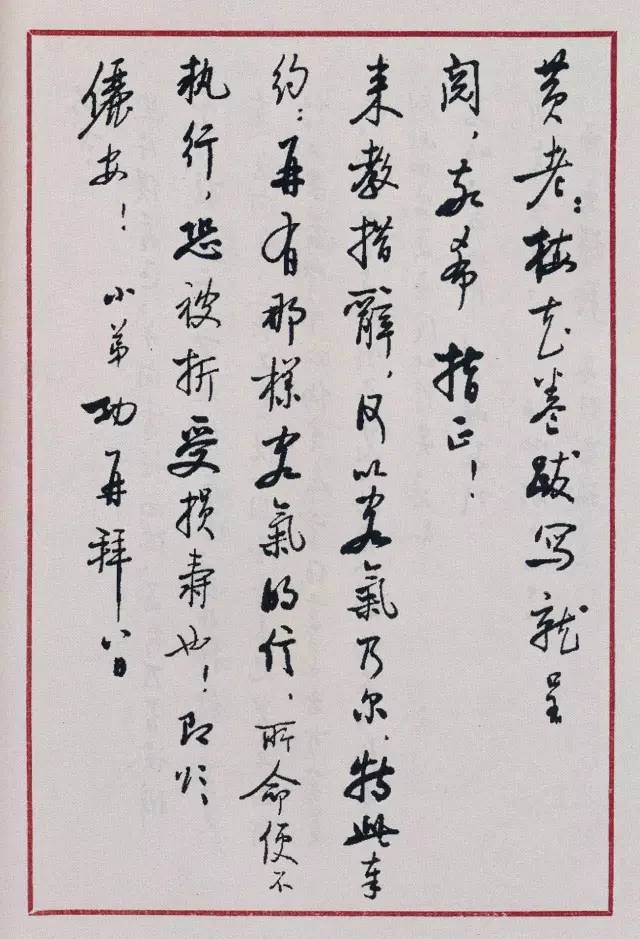 黄老：梅花卷跋写就呈
阅，敬希 指正！
来教措辞，何以客气乃尔，特此奉
约：再有那样客氣的信，所命便不
执行，恐被折受损寿也！即颂
儷安！ 小弟功再拜 八日